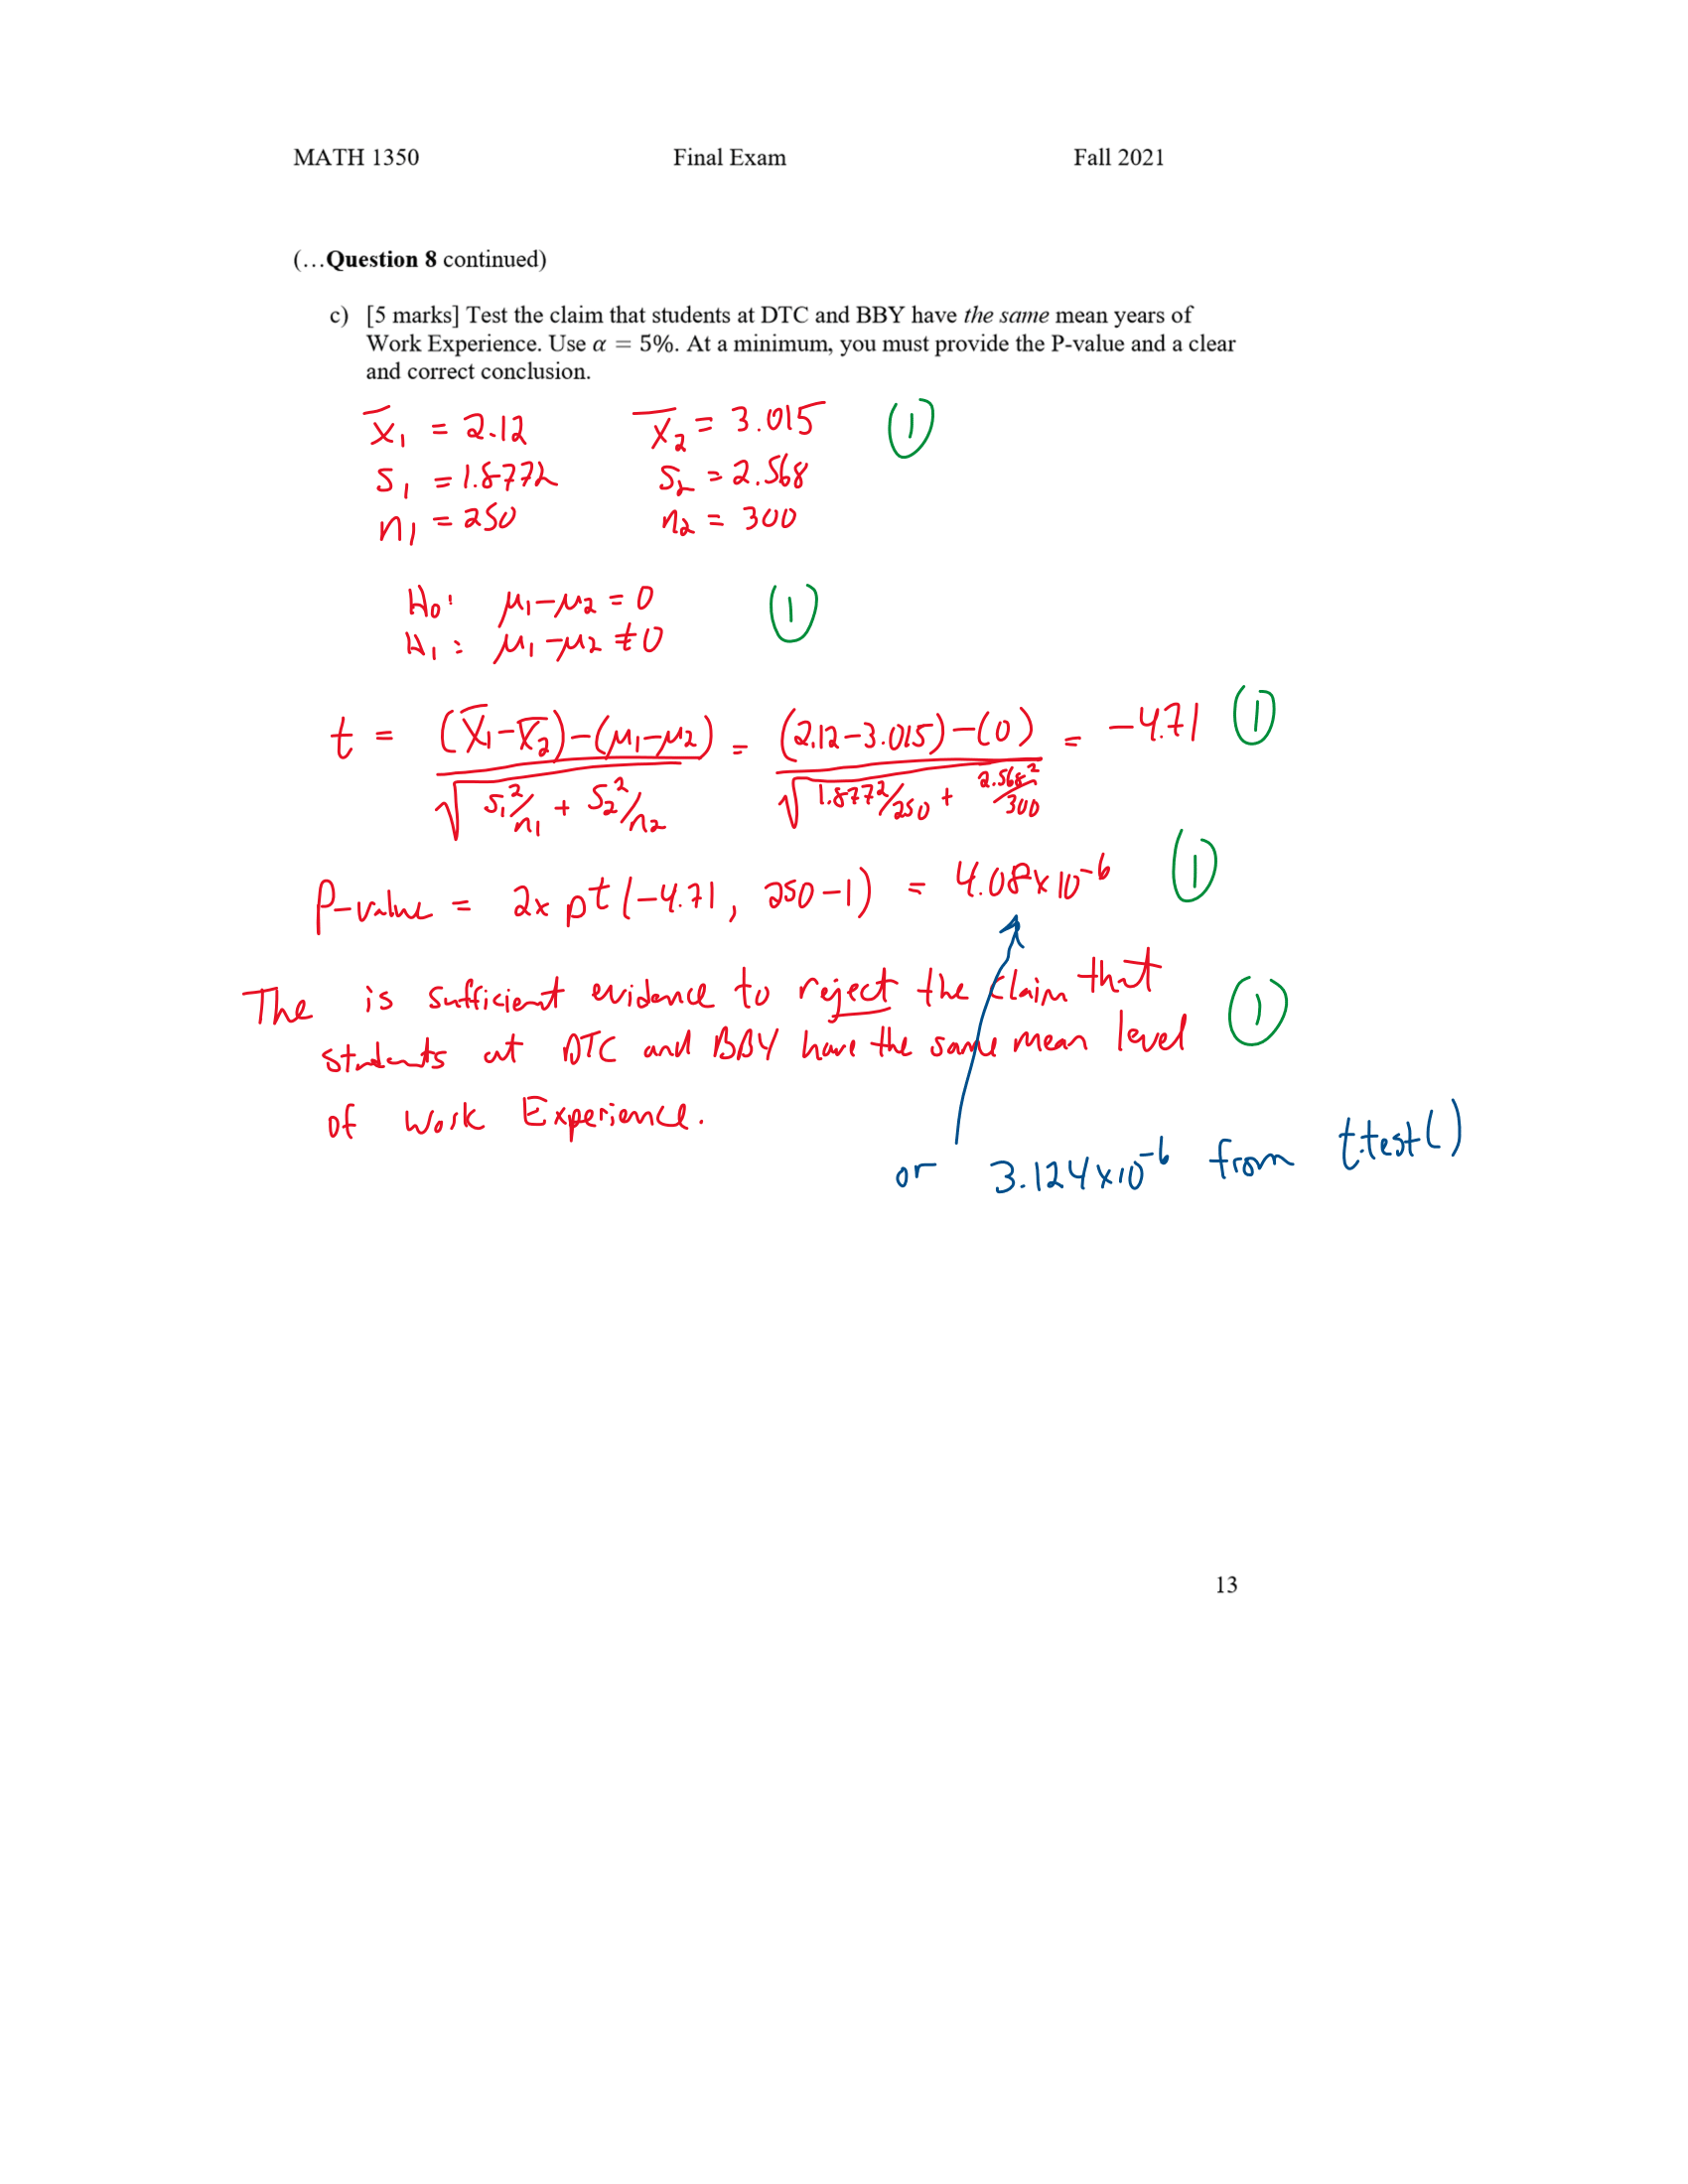 MATH 1350 Final Exam Fall 2021
(…Question 8 continued)
c) [5 marks] Test the claim that students at DTC and BBY have the same mean years of
Work Experience. Use α = 5%. At a minimum, you must provide the P-value and a clear
and correct conclusion.
x̄₁ = 2.12 x̄₂ = 3.015 ①
s₁ = 1.8772 s₂ = 2.568
n₁ = 250 n₂ = 300
H₀: μ₁-μ₂ = 0 ①
H₁: μ₁-μ₂ ≠ 0
t = (x̄₁-x̄₂)-(μ₁-μ₂) / √(s₁²/n₁ + s₂²/n₂) = (2.12-3.015)-(0) / √(1.877²/250 + 2.568²/300) = -4.71 ①
P-value = 2x pt(-4.71, 250-1) = 4.08x10⁻⁶ ①
The is sufficient evidence to reject the claim that
students at DTC and BBY have the same mean level ①
of Work Experience.
or 3.124x10⁻⁶ from t.test()
13